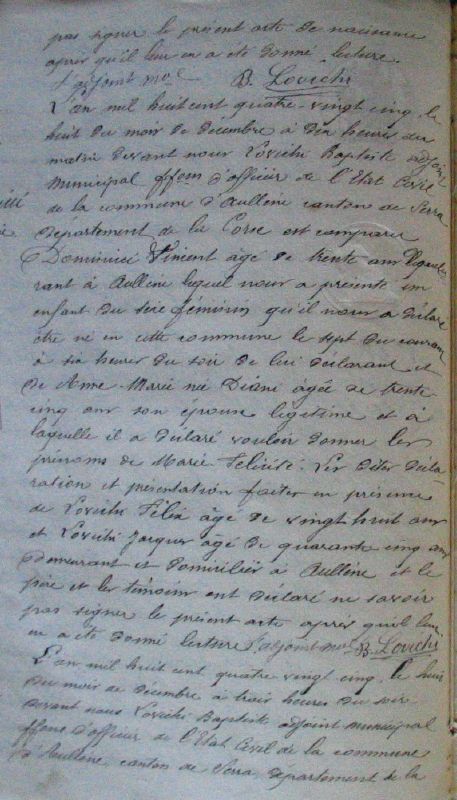 pas signer le présent acte de naissance
après qu'il leur en a été donné lecture.
l'adjoint mal B. Lovichi
L'an mil huit cent quatre-vingt cinq, le
huit du mois de décembre à dix heures du
matin devant nous Lovichi Baptiste adjoint
municipal ffons d'officier de l'Etat Civil
de la commune d'Aullène canton de Serra
département de la Corse est comparu
Dominici Vincent âgé de trente ans
à Aullène lequel nous a présenté un
enfant du sexe féminin qu'il nous a déclaré
être né en cette commune le sept du courant
à six heures du soir de lui déclarant et
de Anne-Marie née Diani âgée de trente
cinq ans son épouse légitime et à
laquelle il a déclaré vouloir donner les
prénoms de Marie Félicité. Les dites décla
ration et présentation faites en présence
de Lovichi Félix âgé de vingt huit ans
et Lovichi Jacques âgé de quarante cinq ans
demeurant et domiciliés à Aullène et le
père et les témoins ont déclaré ne savoir
pas signer le présent acte après qu'il leur
en a été donné lecture l'adjoint mal B. Lovichi
L'an mil huit cent quatre vingt cinq, le huit
du mois de décembre à trois heures du soir
devant nous Lovichi Baptiste adjoint municipal
ffons d'officier de l'Etat Civil de la commune
d'Aullène, canton de Serra, département de la